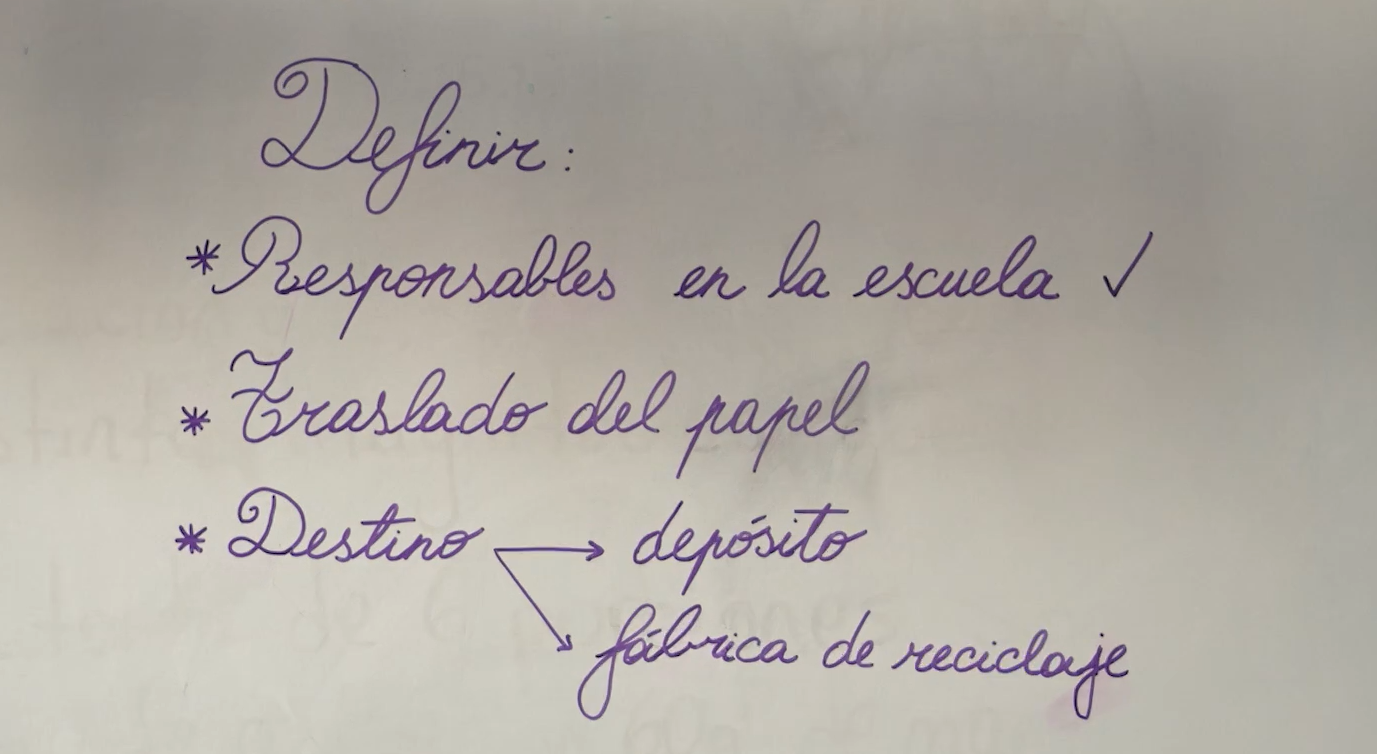 Definir:
* Responsables en la escuela ✓
* Traslado del papel
* Destino → depósito
↘ fábrica de reciclaje